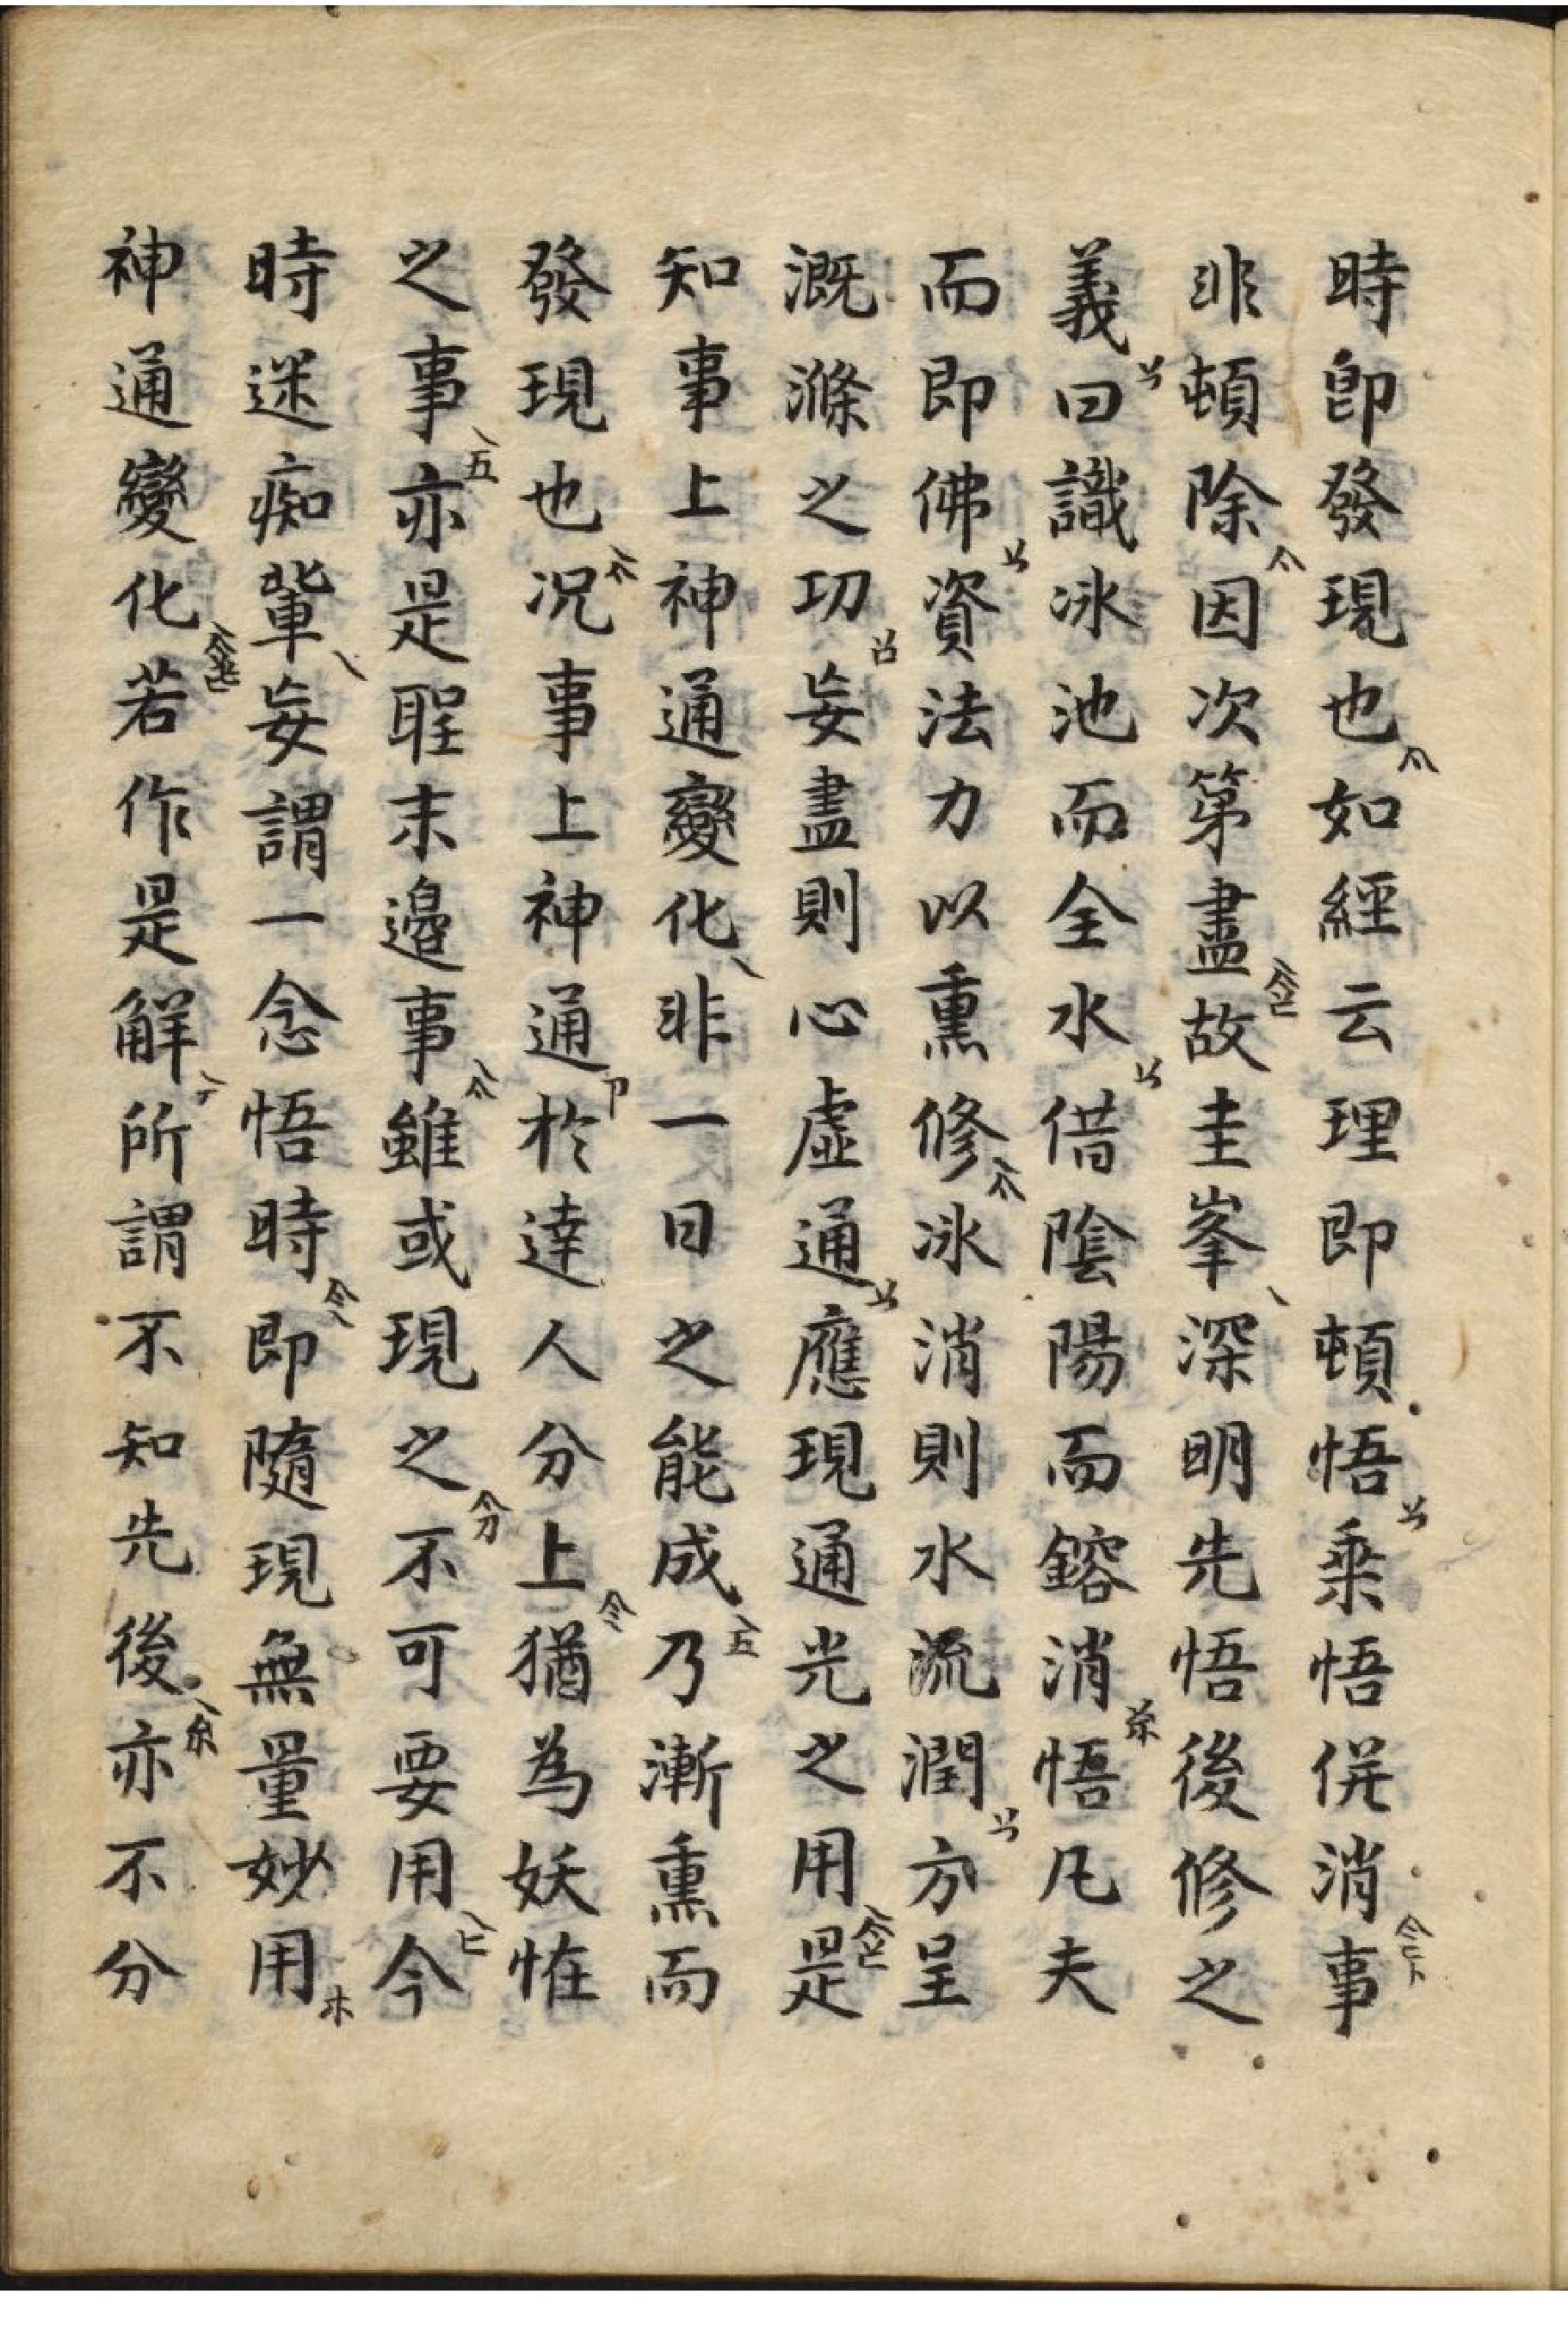 時即發現也如經云理即頓悟乘悟併消事
非頓除因次第盡故圭峯深明先悟後修之
義曰識冰池而全水借陰陽而鎔消悟凡夫
而即佛資法力以熏修冰消則水流潤方呈
溉滌之功妄盡則心虛通應現通光之用是
知事上神通變化非一日之能成乃漸熏而
發現也况事上神通於達人分上猶為妖怪
之事亦是聖末邉事雖或現之不可要用今
時迷痴輩妄謂一念悟時即隨現無量妙用
神通變化若作是解所謂不知先後亦不分